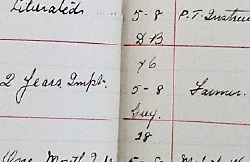 Liberated 5-8 P.T. Instruc
D B
46
2 Years Impt. 5-8 Farmer.
Grey.
28
One Month I 5-5